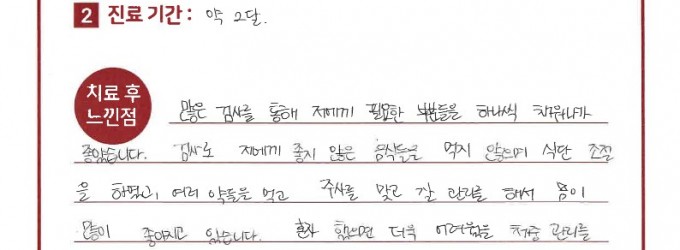 2 진료 기간 : 약 2달.
치료 후
느낀점
많은 검사를 통해 저에게 필요한 부분들을 하나씩 채워나가
좋았습니다. 검사로 저에게 좋지 않은 음식들을 먹지 않으며 식단 조절
을 하였고, 여러 약들을 먹고 주사를 맞고 잘 관리를 해서 몸이
많이 좋아지고 있습니다. 혼자 했으면 더욱 어려웠을 관리를